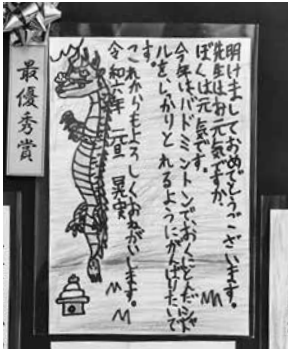 最優秀賞
明けましておめでとうございます。
先生はお元気ですか。
ぼくは元気です。
今年は、バドミントンでおくにとんだシャト
ルをしっかりとれるようにがんばりたいで
す。
これからもよろしくおねがいします。
令和六年 元旦 晃実